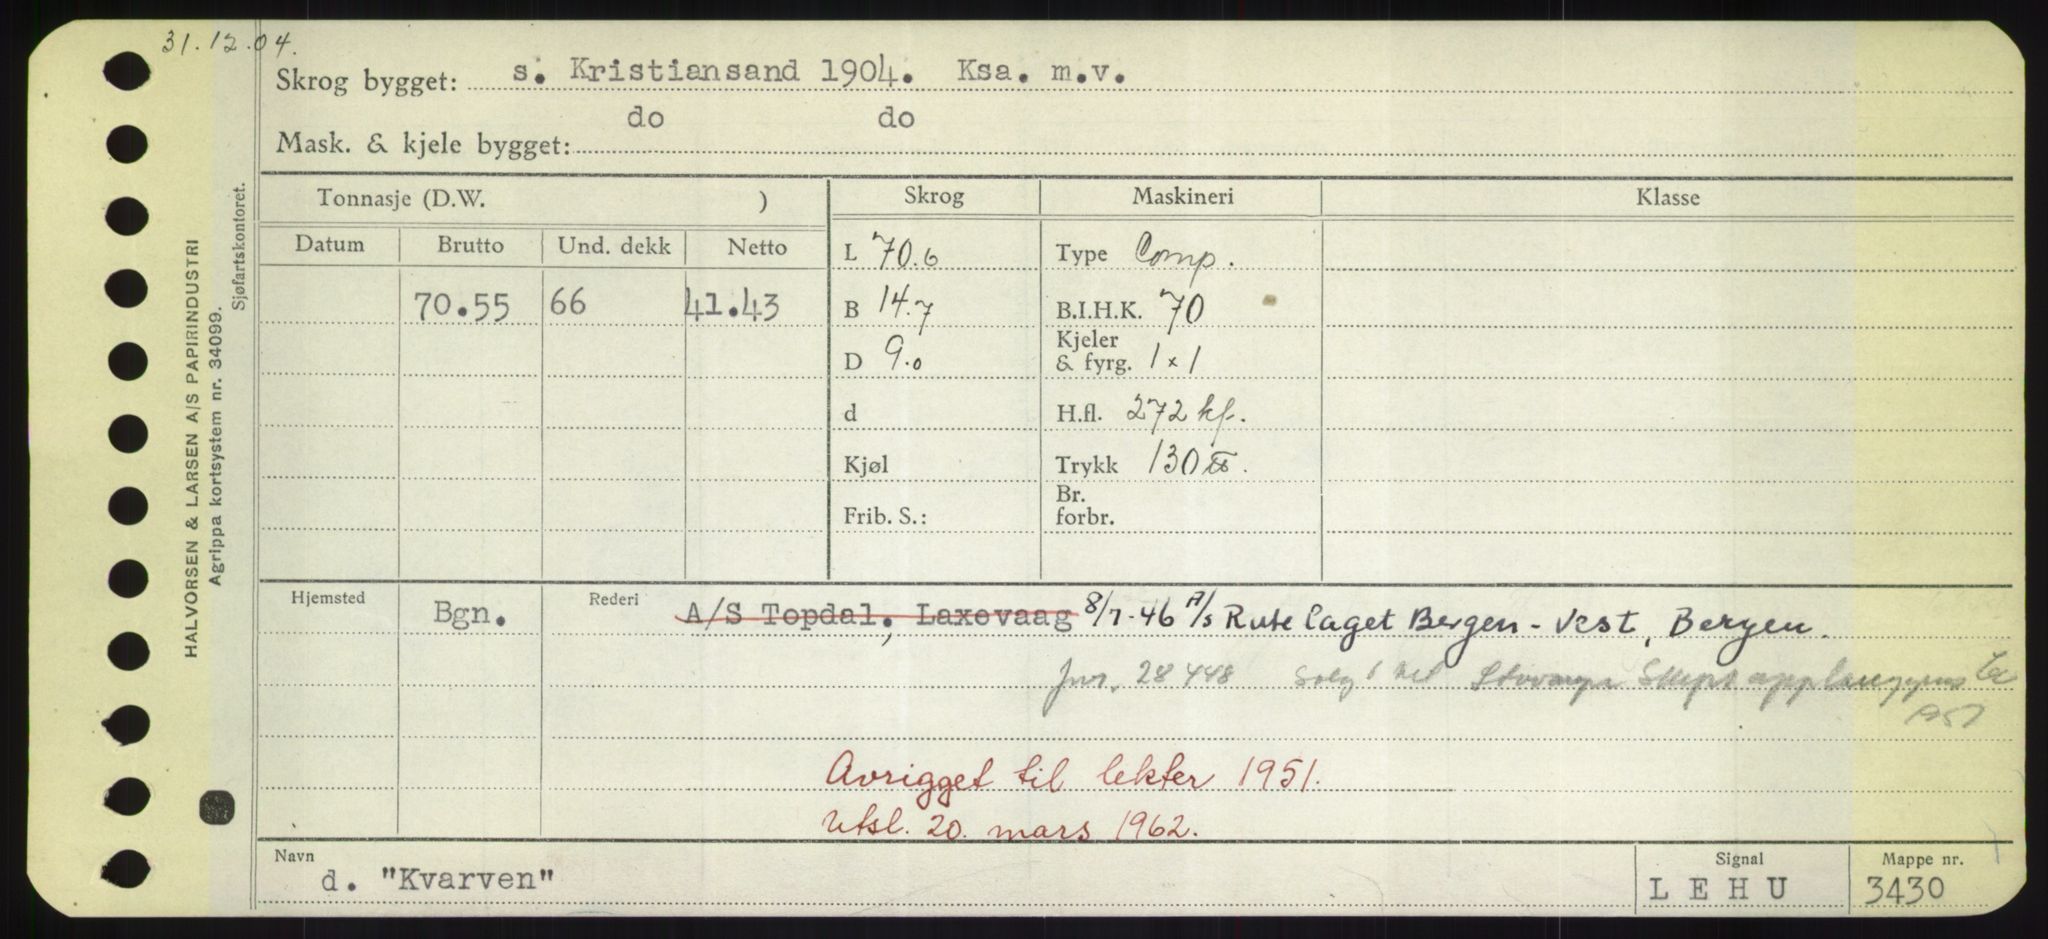 31.12.04.
Skrog bygget: s. Kristiansand 1904. Ksa. m.v.
Mask. & kjele bygget: do do
HALVORSEN & LARSEN A/S PAPIRINDUSTRI
Agrippa kortsystem nr. 34099.
Sjøfartskontoret.
Tonnasje (D.W. ) Skrog Maskineri Klasse
Datum Brutto Und. dekk Netto L 70.6 Type Comp.
70.55 66 41.43 B 14.7 B.I.H.K. 70
D 9.0 Kjeler & fyrg. 1 x 1
d H.fl. 272 kf.
Kjøl Trykk 130 ℔.
Frib. S.: Br. forbr.
Hjemsted Bgn. Rederi A/S Topdal, Laxevaag 8/7-46 A/s Rutelaget Bergen-Vest, Bergen.
Jnr. 28448 Solgt til Skipsopphugging
Avrigget til lekter 1951.
Utsl. 20. mars 1962.
Navn d. "Kvarven" Signal LEHU Mappe nr. 3430